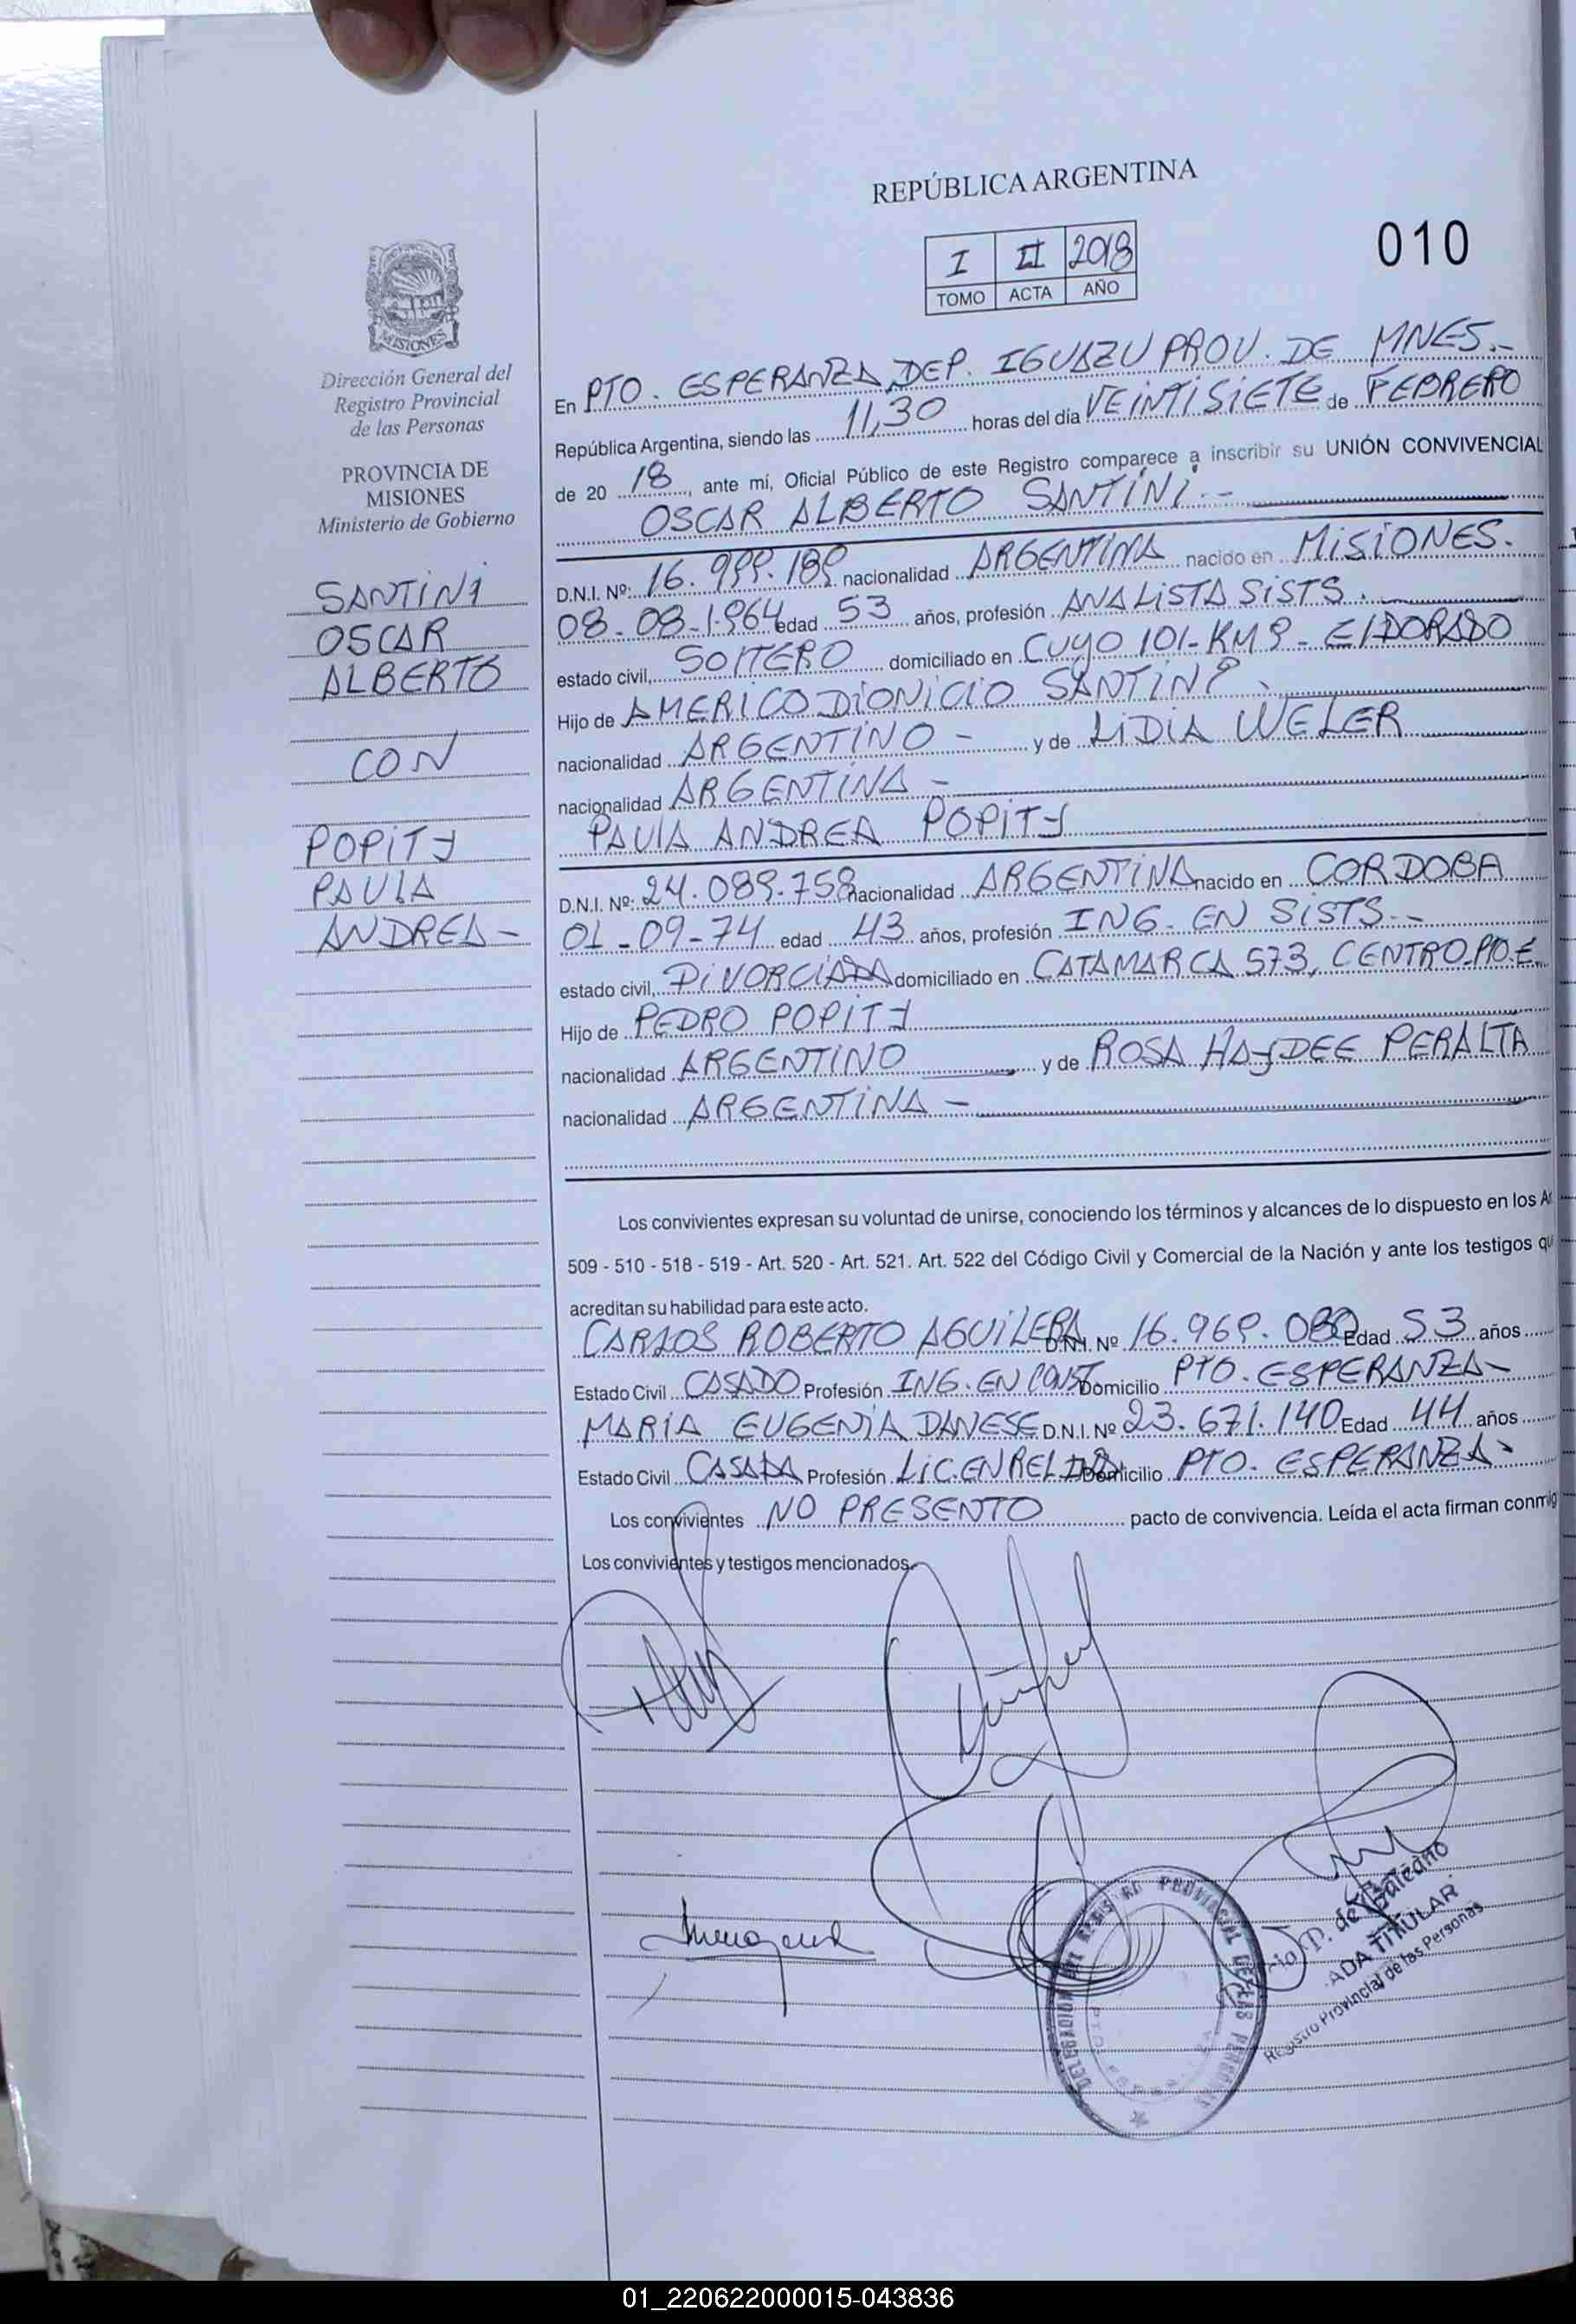 REPÚBLICA ARGENTINA
I II 2018
TOMO ACTA AÑO
010
MISIONES
Dirección General del
Registro Provincial
de las Personas
PROVINCIA DE
MISIONES
Ministerio de Gobierno
SANTINI
OSCAR
ALBERTO
CON
POPITY
PAULA
ANDREA -
En PTO. ESPERANZA DEP. IGUAZU PROV. DE MNES.-
República Argentina, siendo las 11,30 horas del día VEINTISIETE de FEBRERO
de 20 18, ante mí, Oficial Público de este Registro comparece a inscribir su UNIÓN CONVIVENCIAL
OSCAR ALBERTO SANTINI.-
D.N.I. Nº: 16.999.189 nacionalidad ARGENTINA nacido en MISIONES.
08-08-1964 edad 53 años, profesión ANALISTA SISTS.
estado civil, SOLTERO domiciliado en CUYO 101-KM 9- ELDORADO
Hijo de AMERICO DIONICIO SANTINI
nacionalidad ARGENTINO - y de LIDIA WELER
nacionalidad ARGENTINA -
PAULA ANDREA POPITY
D.N.I. Nº: 24.089.758 nacionalidad ARGENTINA nacido en CORDOBA
01-09-74 edad 43 años, profesión ING. EN SISTS.-
estado civil, DIVORCIADA domiciliado en CATAMARCA 573, CENTRO-PTO.E.
Hijo de PEDRO POPITY
nacionalidad ARGENTINO y de ROSA HAYDEE PERALTA
nacionalidad ARGENTINA -
Los convivientes expresan su voluntad de unirse, conociendo los términos y alcances de lo dispuesto en los
509 - 510 - 518 - 519 - Art. 520 - Art. 521. Art. 522 del Código Civil y Comercial de la Nación y ante los testigos
acreditan su habilidad para este acto.
CARLOS ROBERTO AGUILERA D.N.I. Nº 16.969.080 Edad 53 años
Estado Civil CASADO Profesión ING. EN CONST. Domicilio PTO. ESPERANZA-
MARIA EUGENIA DANESE D.N.I. Nº 23.671.140 Edad 44 años
Estado Civil CASADA Profesión LIC. EN REL. IND. Domicilio PTO. ESPERANZA-
Los convivientes NO PRESENTO pacto de convivencia. Leída el acta firman
Los convivientes y testigos mencionados.
DELEGACION REGISTRO PROVINCIAL DE LAS PERSONAS
P. de Galeano
TITULAR
Registro Provincial de las Personas
01_220622000015-043836